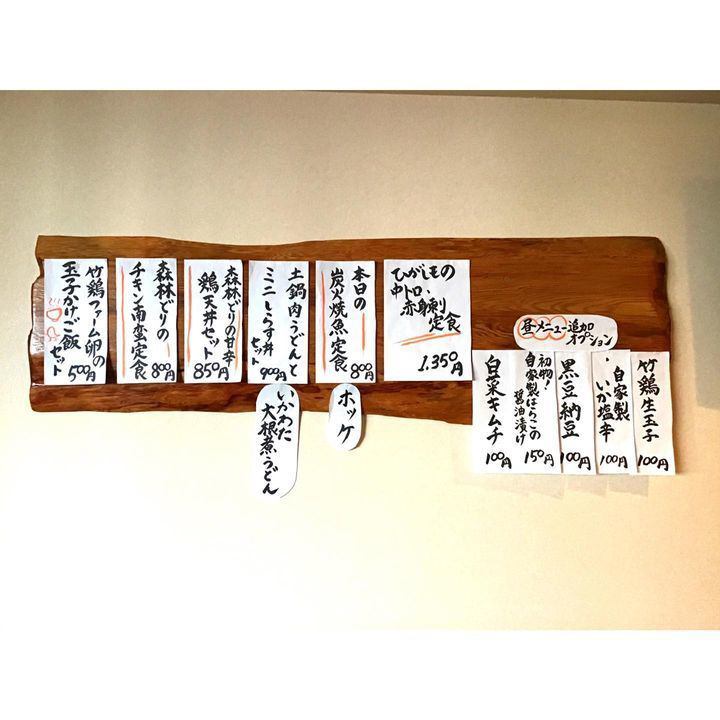 ひがしもの
中トロ・
赤身刺
定食
1.350円
本日の
炭火焼魚定食
800円
ホッケ
土鍋肉うどんと
ミニしらす丼
セット
900円
いかわた
大根煮うどん
森林どりの甘辛
鶏天丼セット
850円
森林どりの
チキン南蛮定食
800円
竹鶏ファーム卵の
玉子かけご飯
セット
500円
昼メニュー追加
オプション
竹鶏生玉子
100円
自家製
いか塩辛
100円
黒豆納豆
100円
初物!
自家製はらこの
醤油漬け
150円
白菜キムチ
100円